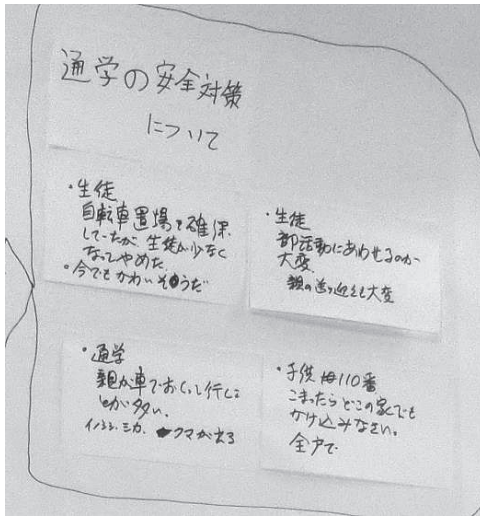 通学の安全対策
について
・生徒
自転車置場を確保
していたが、生徒が少なく
なってやめた。
・今でもかわいそうだ
・生徒
部活動にあわせるのが
大変
親の送り迎えも大変
・通学
親が車でおくって行くこ
とが多い。
イノシシ、シカ、クマが出る
・子供110番
こまったらどこの家でも
かけ込みなさい。
全戸で